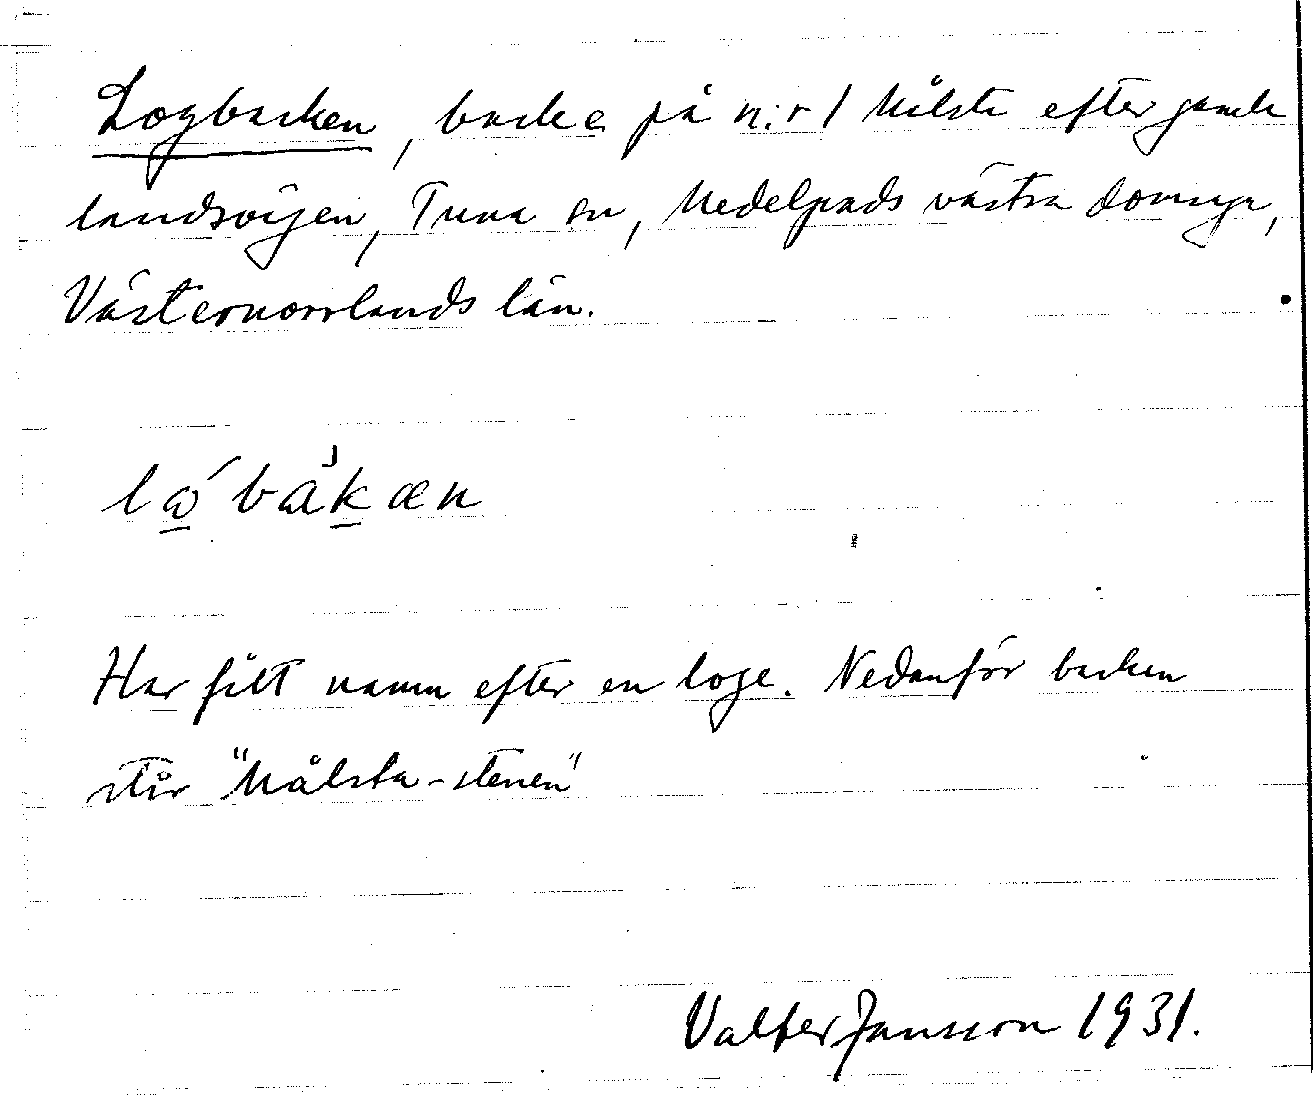 Logbacken, backe på n:r 1 Målsta efter gamla
landsvägen, Tuna sn, Medelpads västra domsga,
Västernorrlands län.
lo̱´bak̠æn
Har fått namn efter en loge. Nedanför backen
står "Målsta-stenen"
Valter Jansson 1931.